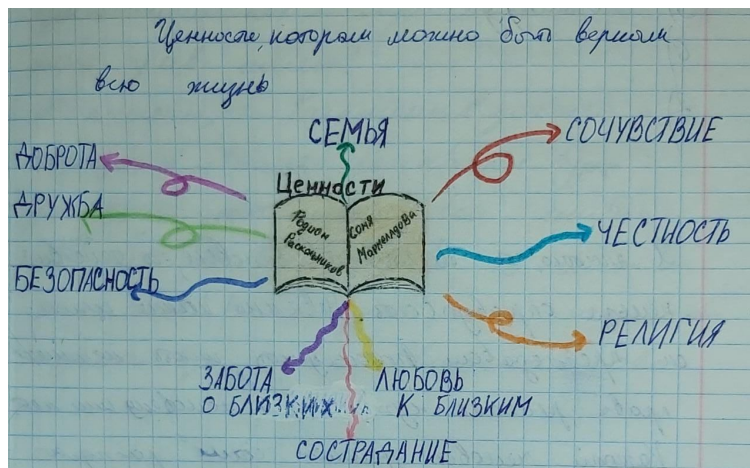 Ценности, которым можно быть верным
всю жизнь
СЕМЬЯ
СОЧУВСТВИЕ
ДОБРОТА
Ценности
ДРУЖБА
Родион
Раскольников
Соня
Мармеладова
ЧЕСТНОСТЬ
БЕЗОПАСНОСТЬ
РЕЛИГИЯ
ЗАБОТА
О БЛИЗКИХ
ЛЮБОВЬ
К БЛИЗКИМ
СОСТРАДАНИЕ